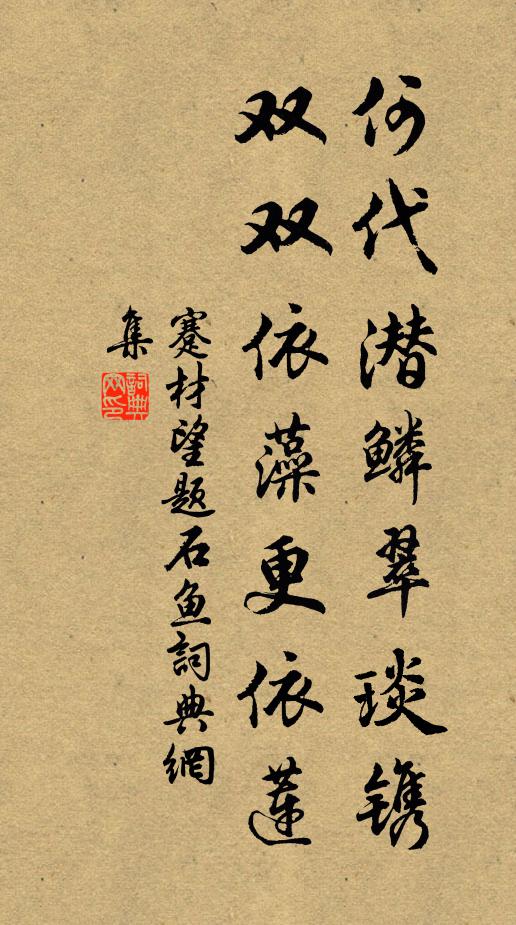 何代潜鳞翠琰镌
双双依藻更依莲
蹇材望题石鱼詞典網
集
詞典网印